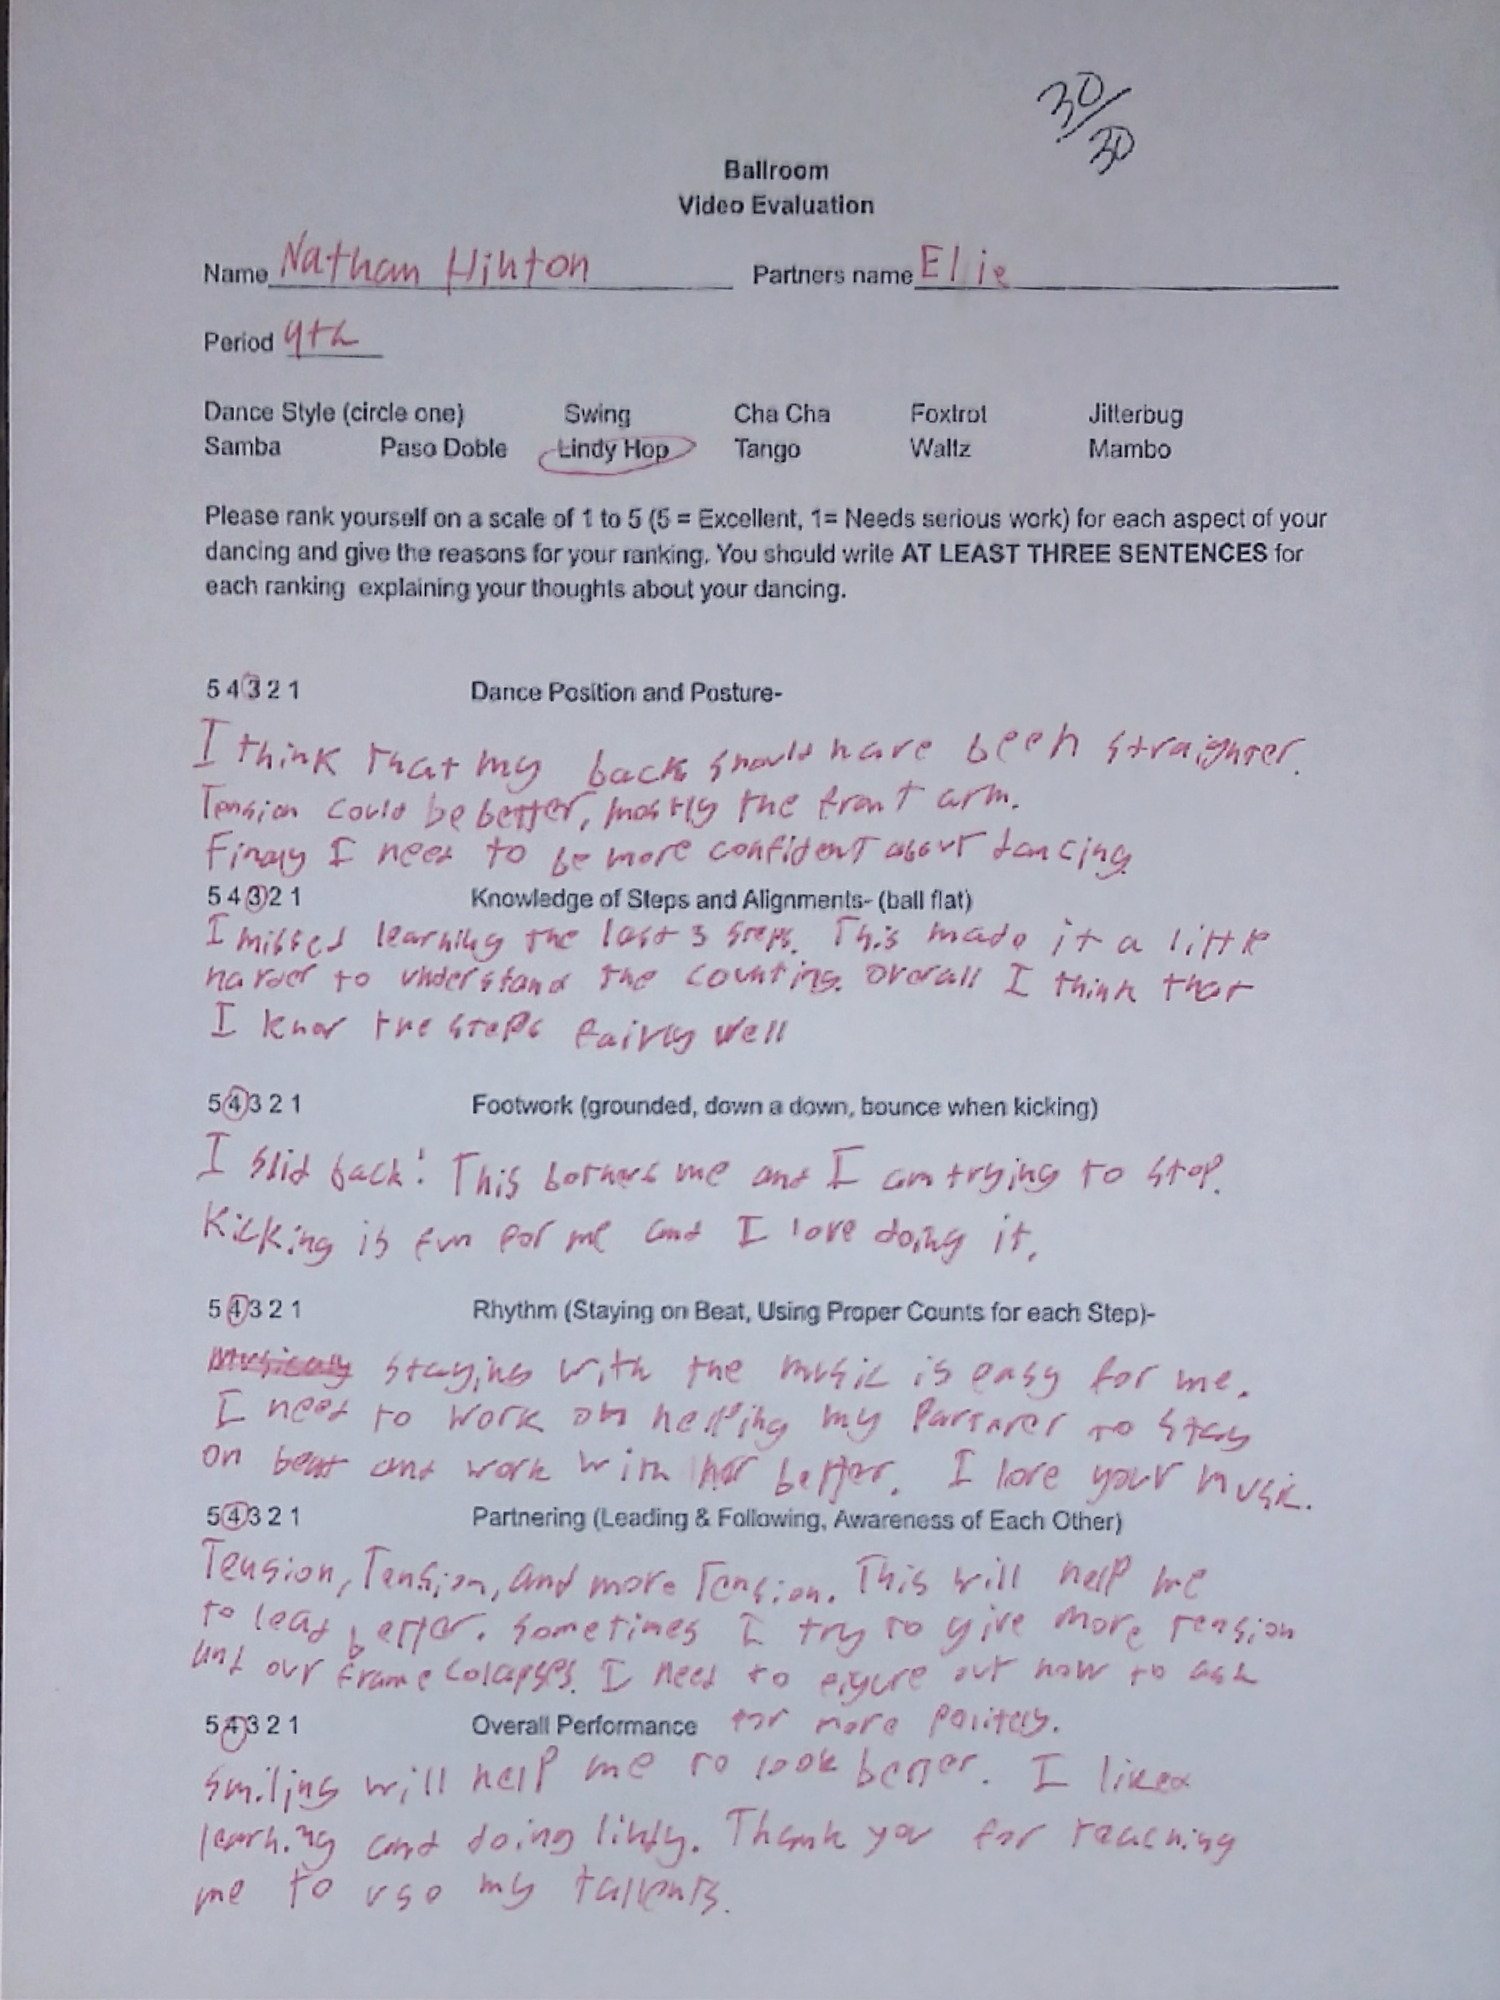 30/30
Ballroom
Video Evaluation
Name Nathan Hinton Partners name Ellie
Period 4th
Dance Style (circle one) Swing Cha Cha Foxtrot Jitterbug
Samba Paso Doble Lindy Hop Tango Waltz Mambo
Please rank yourself on a scale of 1 to 5 (5 = Excellent, 1= Needs serious work) for each aspect of your
dancing and give the reasons for your ranking. You should write AT LEAST THREE SENTENCES for
each ranking explaining your thoughts about your dancing.
5 4 3 2 1 Dance Position and Posture-
I think that my back should have been straighter.
Tension could be better, mostly the front arm.
Finaly I need to be more confident about dancing.
5 4 3 2 1 Knowledge of Steps and Alignments- (ball flat)
I missed learning the last 3 steps. This made it a little
harder to understand the counting. Overall I think that
I know the steps fairly well
5 4 3 2 1 Footwork (grounded, down a down, bounce when kicking)
I slid back! This bothers me and I am trying to stop.
Kicking is fun for me and I love doing it.
5 4 3 2 1 Rhythm (Staying on Beat, Using Proper Counts for each Step)-
staying with the music is easy for me.
I need to work on helping my Partner to stay
on beat and work with her better. I love your music.
5 4 3 2 1 Partnering (Leading & Following, Awareness of Each Other)
Tension, Tension, and more Tension. This will help me
to lead better. Sometimes I try to give more tension
and our frame colapses. I need to figure out how to ask
5 4 3 2 1 Overall Performance for more politely.
Smiling will help me to look better. I liked
learning and doing lindy. Thank you for teaching
me to use my tallents.